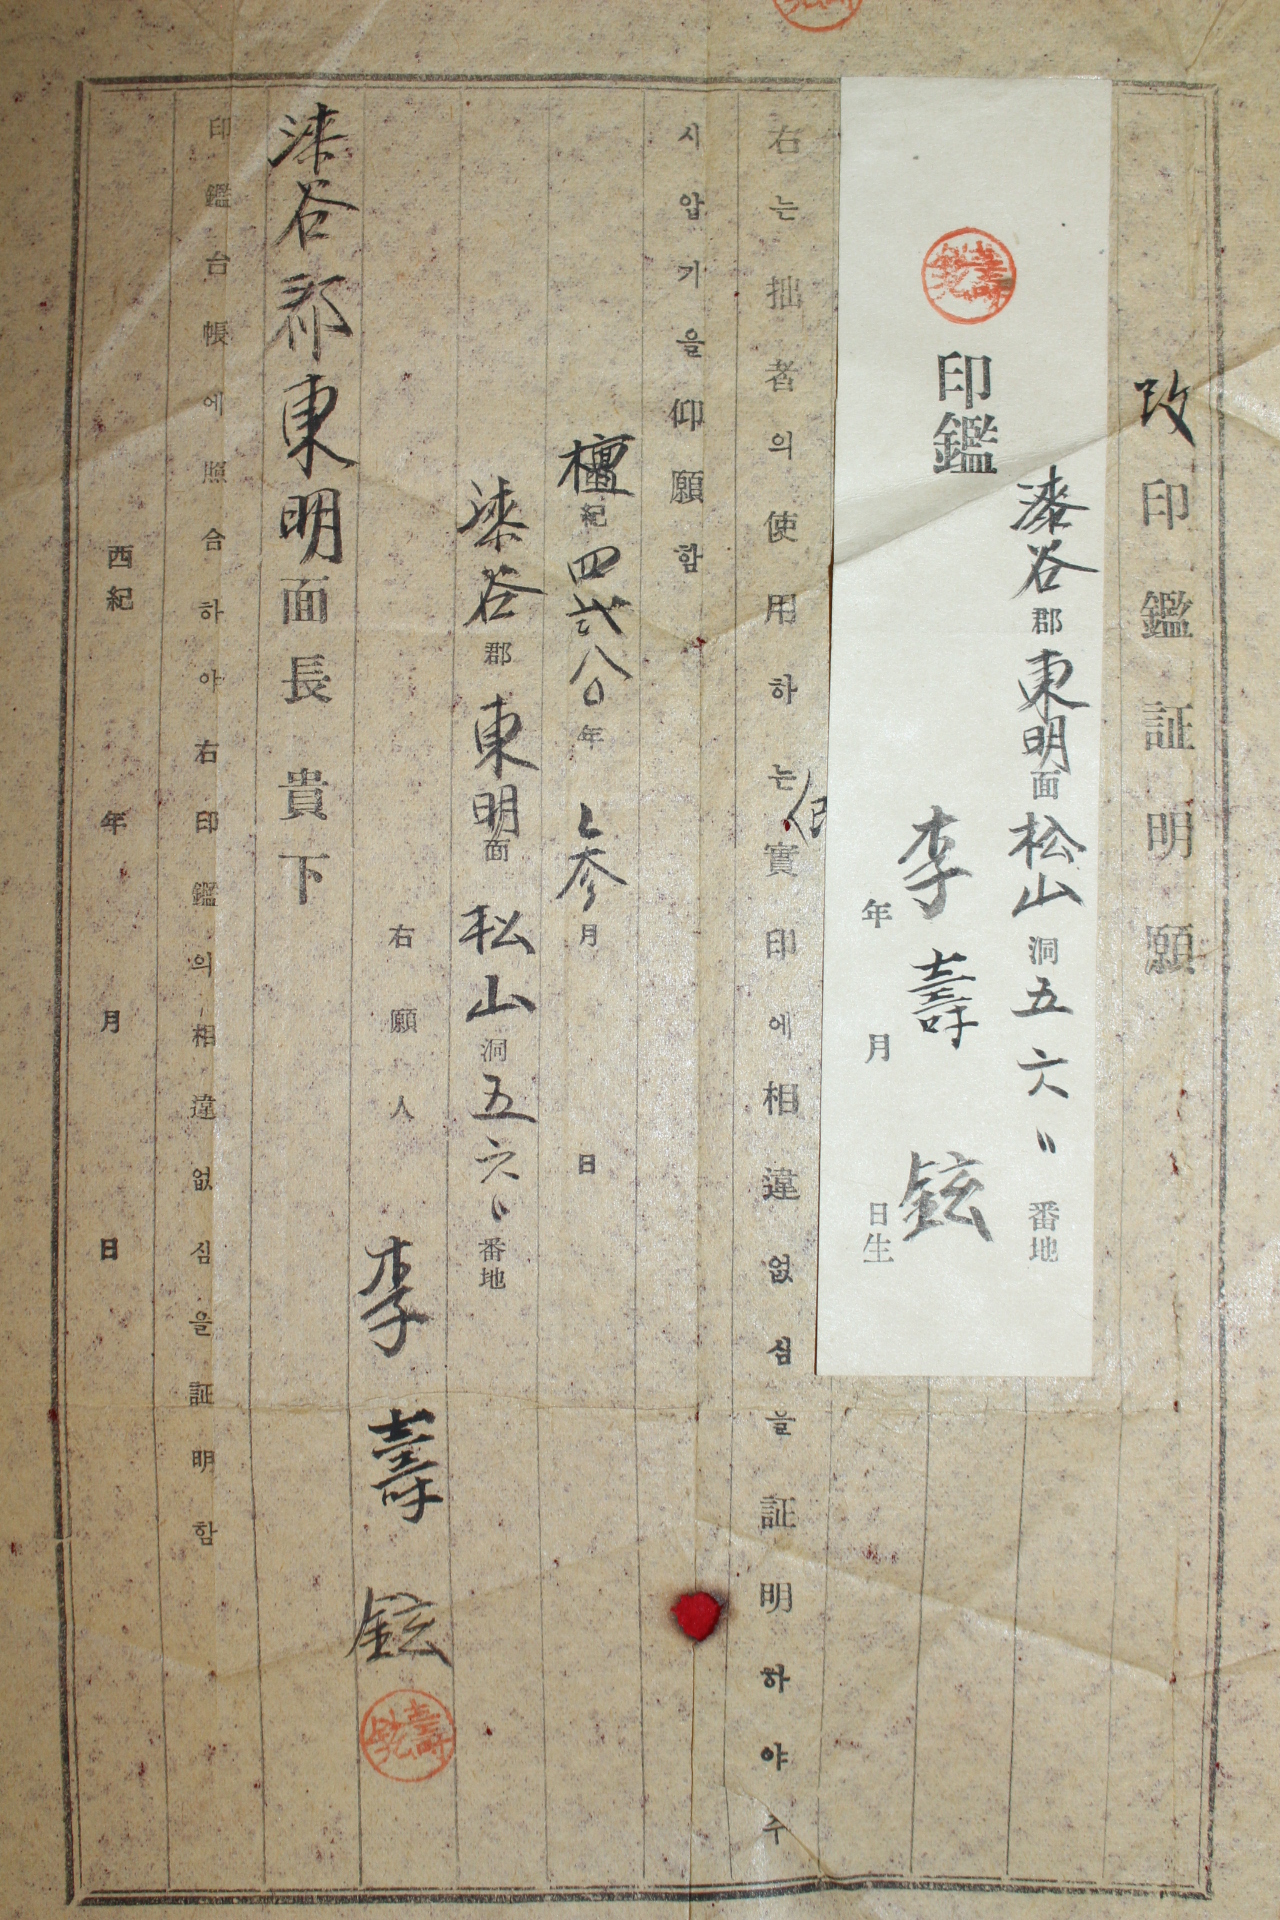 改印鑑証明願
漆谷郡東明面松山洞五六〃番地
印鑑 李壽鉉
年月日生
右는拙者의使用하는實印에相違없심을証明하야주
시압기을仰願함
檀紀四弍八〇年参月日
漆谷郡東明面松山洞五六〃番地
右願人 李壽鉉
漆谷郡東明面長 貴下
印鑑台帳에照合하야右印鑑의相違없심을証明함
西紀 年 月 日